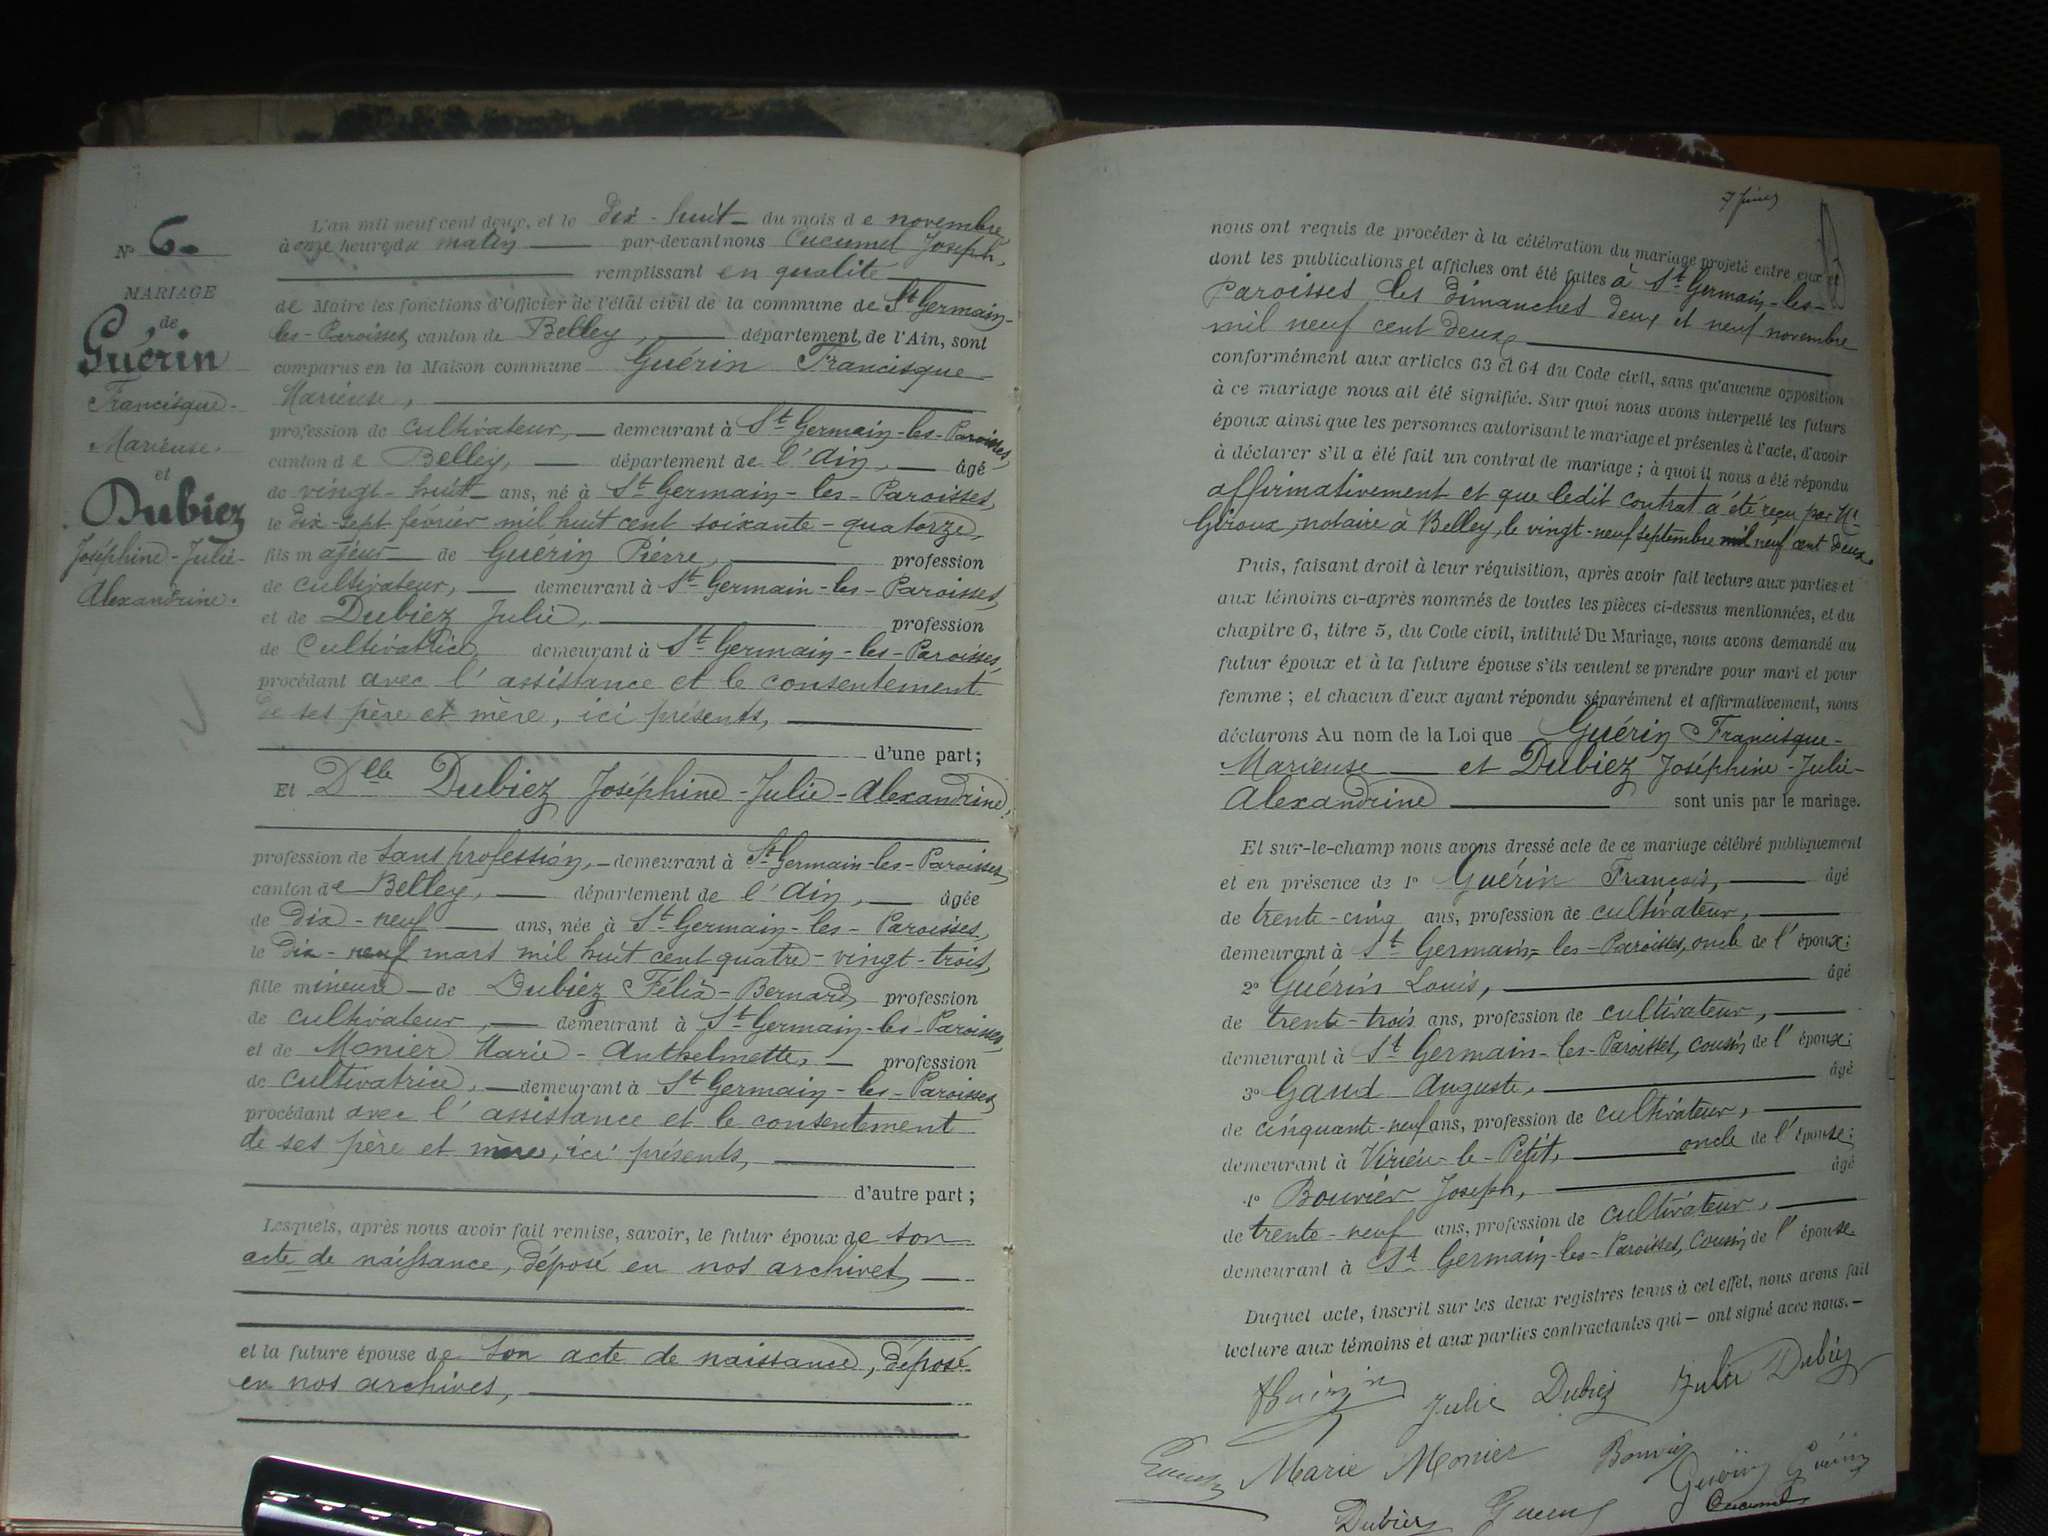 L'an mil neuf cent deux, et le dix-huit du mois de novembre
à onze heures du matin par-devant nous Cucumel Joseph,
remplissant en qualité
de Maire les fonctions d'Officier de l'état civil de la commune de St Germain-
les-Paroisses, canton de Belley, département de l'Ain, sont
comparus en la Maison commune Guérin Francisque
Marieuse,
profession de cultivateur, demeurant à St Germain-les-Paroisses,
canton de Belley, département de l'Ain, âgé
de vingt-huit ans, né à St Germain-les-Paroisses,
le dix-sept février mil huit cent soixante-quatorze,
fils majeur de Guérin Pierre, profession
de cultivateur, demeurant à St Germain-les-Paroisses,
et de Dubiez Julie, profession
de Cultivatrice, demeurant à St Germain-les-Paroisses,
procédant avec l'assistance et le consentement
de ses père et mère, ici présents,
d'une part;
Et Dlle Dubiez Joséphine-Julie-Alexandrine,
profession de sans profession, demeurant à St Germain-les-Paroisses,
canton de Belley, département de l'Ain, âgée
de dix-neuf ans, née à St Germain-les-Paroisses,
le dix-neuf mars mil huit cent quatre-vingt-trois,
fille mineure de Dubiez Félix-Bernard, profession
de cultivateur, demeurant à St Germain-les-Paroisses,
et de Monier Marie-Anthelmette, profession
de cultivatrice, demeurant à St Germain-les-Paroisses,
procédant avec l'assistance et le consentement
de ses père et mère, ici présents,
d'autre part;
Lesquels, après nous avoir fait remise, savoir, le futur époux de son
acte de naissance, déposé en nos archives,
et la future épouse de son acte de naissance, déposé
en nos archives,
No 6.
MARIAGE
de
Guérin
Francisque-
Marieuse.
et
Dubiez
Joséphine-Julie-
Alexandrine.
nous ont requis de procéder à la célébration du mariage projeté entre eux et
dont les publications et affiches ont été faites à St Germain-les-
Paroisses les dimanches deux et neuf novembre
mil neuf cent deux,
conformément aux articles 63 et 64 du Code civil, sans qu'aucune opposition
à ce mariage nous ait été signifiée. Sur quoi nous avons interpellé les futurs
époux ainsi que les personnes autorisant le mariage et présentes à l'acte, d'avoir
à déclarer s'il a été fait un contrat de mariage; à quoi il nous a été répondu
affirmativement et que ledit contrat a été reçu par Me
Giroux, notaire à Belley, le vingt-neuf septembre mil neuf cent deux.
Puis, faisant droit à leur réquisition, après avoir fait lecture aux parties et
aux témoins ci-après nommés de toutes les pièces ci-dessus mentionnées, et du
chapitre 6, titre 5, du Code civil, intitulé Du Mariage, nous avons demandé au
futur époux et à la future épouse s'ils veulent se prendre pour mari et pour
femme; et chacun d'eux ayant répondu séparément et affirmativement, nous
déclarons Au nom de la Loi que Guérin Francisque-
Marieuse et Dubiez Joséphine-Julie-
Alexandrine sont unis par le mariage.
Et sur-le-champ nous avons dressé acte de ce mariage célébré publiquement
et en présence de 1° Guérin François, âgé
de trente-cinq ans, profession de cultivateur,
demeurant à St Germain-les-Paroisses, oncle de l'époux;
2° Guérin Louis, âgé
de trente-trois ans, profession de cultivateur,
demeurant à St Germain-les-Paroisses, cousin de l'époux;
3° Gaud Auguste, âgé
de cinquante-neuf ans, profession de cultivateur,
demeurant à Virieu-le-Petit, oncle de l'épouse;
4° Bouvier Joseph, âgé
de trente-neuf ans, profession de cultivateur,
demeurant à St Germain-les-Paroisses, cousin de l'épouse
Duquel acte, inscrit sur les deux registres tenus à cet effet, nous avons fait
lecture aux témoins et aux parties contractantes qui — ont signé avec nous. —
Julie Dubiez Julie Dubiez
Marie Monier Bouvier Guérin Guérin
Dubiez Cucumel